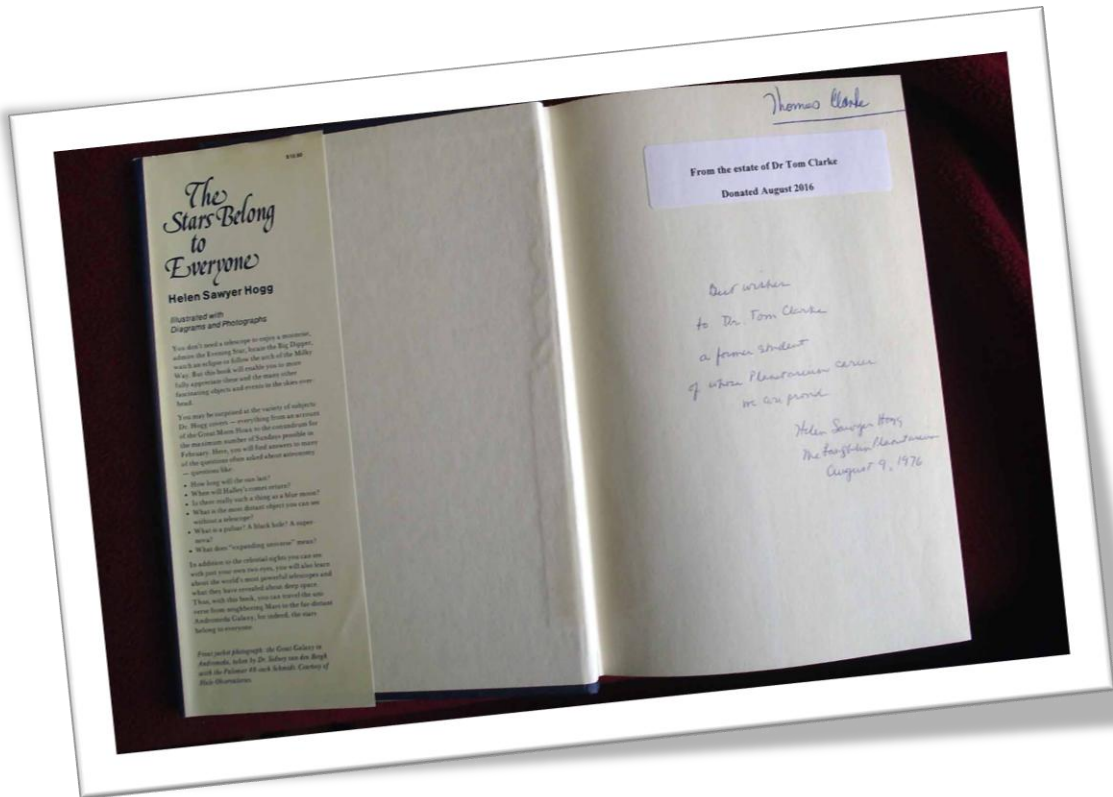 $10.00
The
Stars Belong
to
Everyone
Helen Sawyer Hogg
Illustrated with
Diagrams and Photographs
You don't need a telescope to enjoy a moonrise,
admire the Evening Star, locate the Big Dipper,
watch an eclipse or follow the arch of the Milky
Way. But this book will enable you to more
fully appreciate these and the many other
fascinating objects and events in the skies over-
head.
You may be surprised at the variety of subjects
Dr. Hogg covers — everything from an account
of the Great Moon Hoax to the conundrum for
the maximum number of Sundays possible in
February. Here, you will find answers to many
of the questions often asked about astronomy
— questions like:
• How long will the sun last?
• When will Halley's comet return?
• Is there really such a thing as a blue moon?
• What is the most distant object you can see
without a telescope?
• What is a pulsar? A black hole? A super-
nova?
• What does "expanding universe" mean?
In addition to the celestial sights you can see
with just your own two eyes, you will also learn
about the world's most powerful telescopes and
what they have revealed about deep space.
Thus, with this book, you can travel the uni-
verse from neighboring Mars to the far-distant
Andromeda Galaxy; for indeed, the stars
belong to everyone.
Front jacket photograph: the Great Galaxy in
Andromeda, taken by Dr. Sidney van den Bergh
with the Palomar 48-inch Schmidt. Courtesy of
Hale Observatories.
Thomas Clarke
From the estate of Dr Tom Clarke
Donated August 2016
Best wishes
to Dr. Tom Clarke
a former student
of whose Planetarium career
we are proud
Helen Sawyer Hogg
McLaughlin Planetarium
August 9, 1976